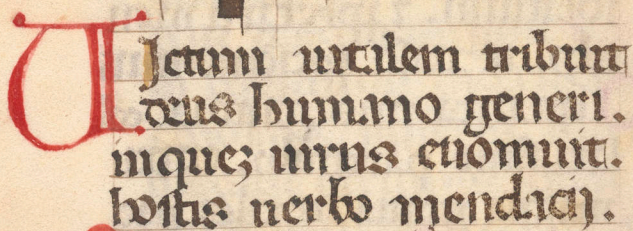 UIctum uitalem tribuit
deus humano generi.
in quez uirus euomuit.
hostis uerbo mendacij.